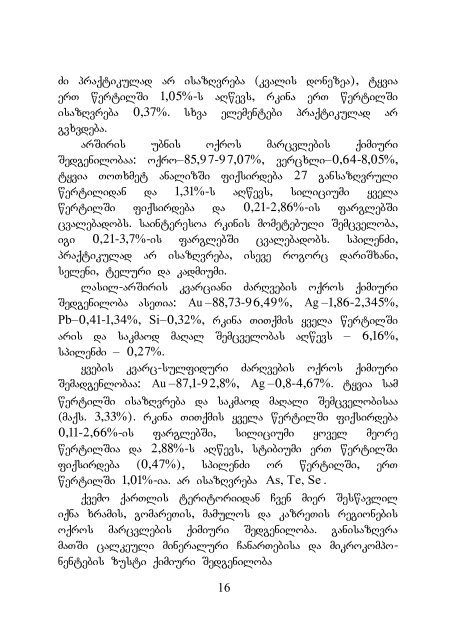 ძი პრაქტიკულად არ ისაზღვრება (კვალის დონეზეა), ტყვია
ერთ წერტილში 1,05%-ს აღწევს, რკინა ერთ წერტილში
ისაზღვრება 0,37%. სხვა ელემენტები პრაქტიკულად არ
გვხვდება.
არშირის უბნის ოქროს მარცვლების ქიმიური
შედგენილობაა: ოქრო–85,97-97,07%, ვერცხლი–0,64-8,05%,
ტყვია თოთხმეტ ანალიზში ფიქსირდება 27 განსაზღვრული
წერტილიდან და 1,31%-ს აღწევს, სილიციუმი ყველა
წერტილში ფიქსირდება და 0,21-2,86%-ის ფარგლებში
ცვალებადობს. საინტერესოა რკინის მომეტებული შემცველობა,
იგი 0,21-3,7%-ის ფარგლებში ცვალებადობს. სპილენძი,
პრაქტიკულად არ ისაზღვრება, ისევე როგორც დარიშხანი,
სელენი, ტელური და კადმიუმი.
ლასილ-არშირის კვარციანი ძარღვების ოქროს ქიმიური
შედგენილობა ასეთია: Au –88,73-96,49%, Ag –1,86-2,345%,
Pb–0,41-1,34%, Si–0,32%, რკინა თითქმის ყველა წერტილში
არის და საკმაოდ მაღალ შემცველობას აღწევს – 6,16%,
სპილენძი – 0,27%.
ყვების კვარც-სულფიდური ძარღვების ოქროს ქიმიური
შემადგენლობაა: Au –87,1-92,8%, Ag –0,8-4,67%. ტყვია სამ
წერტილში ისაზღვრება და საკმაოდ მაღალი შემცველობისაა
(მაქს. 3,33%). რკინა თითქმის ყველა წერტილში ფიქსირდება
0,11-2,66%-ის ფარგლებში, სილიციუმი ყოველ მეორე
წერტილშია და 2,88%-ს აღწევს, სტიბიუმი ერთ წერტილში
ფიქსირდება (0,47%), სპილენძი ორ წერტილში, ერთ
წერტილში 1,01%-ია. არ ისაზღვრება As, Te, Se .
ქვემო ქართლის ტერიტორიიდან ჩვენ მიერ შესწავლილ
იქნა ხრამის, გომარეთის, მამულოს და კაზრეთის რეგიონების
ოქროს მარცვლების ქიმიური შედგენილობა. განისაზღვრა
მათში ცალკეული მინერალური ჩანართებისა და მიკროკომპო-
ნენტების ზუსტი ქიმიური შედგენილობა
16